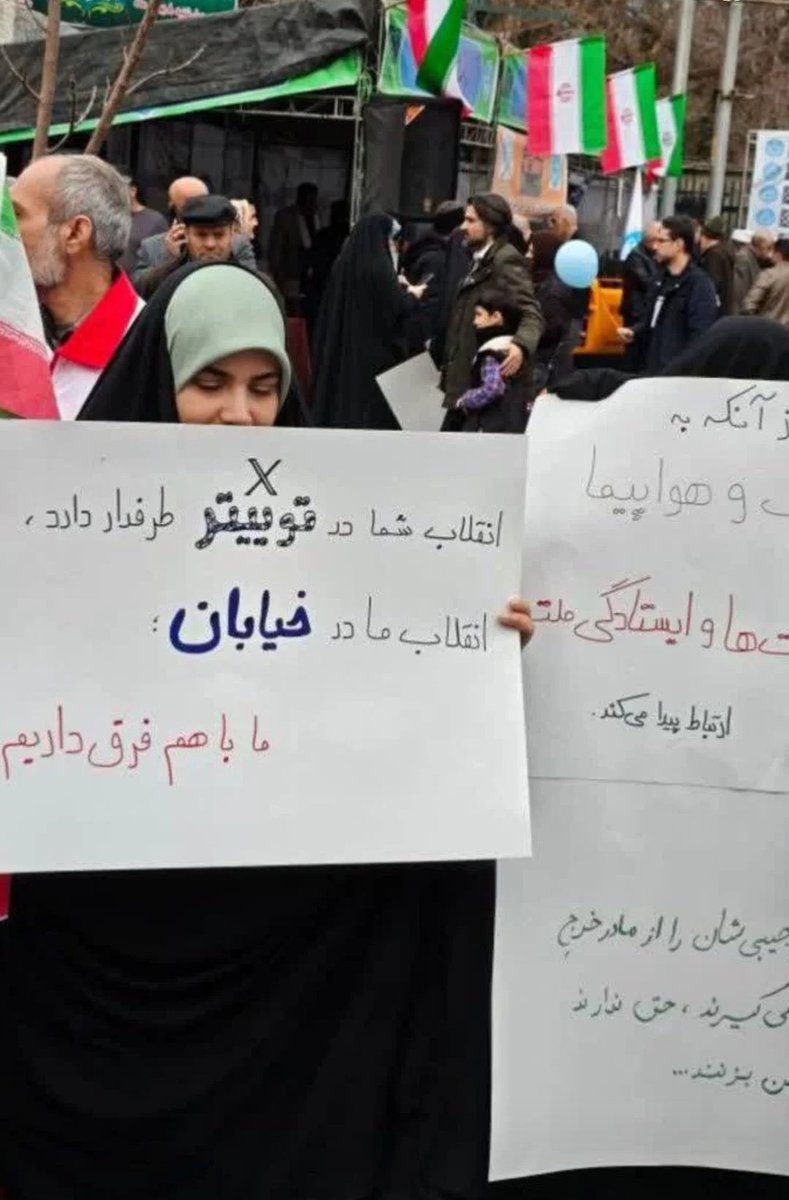 X
انقلاب شما در توییتر طرفدار دارد،
انقلاب ما در خیابان؛
ما با هم فرق داریم
از آنکه به
و هواپیما
ت‌ها و ایستادگی ملت
ارتباط پیدا می‌کند.
جیبی‌شان را از مادر خرج
می‌گیرند، حق ندارند
بزنند...